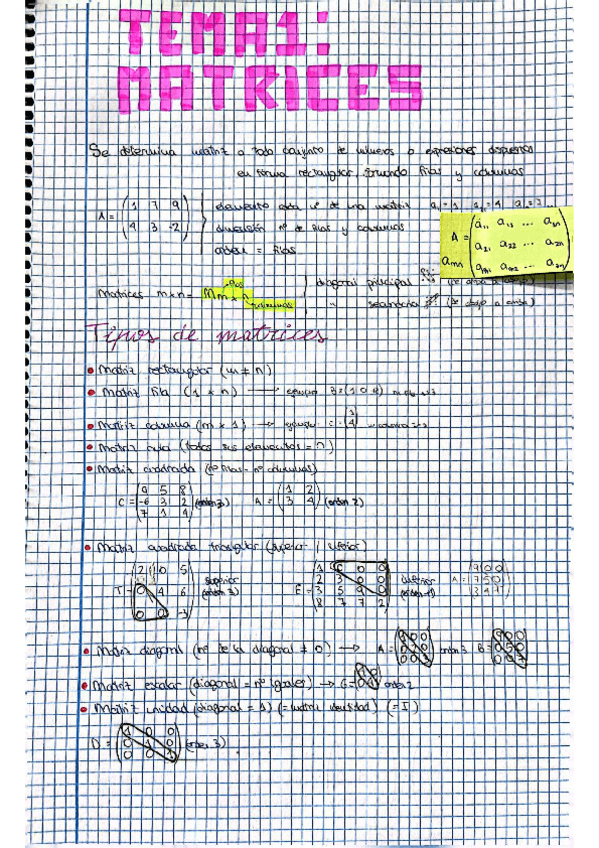 TEMA 1:
MATRICES
Se determina matriz a todo conjunto de números o expresiones dispuestos
en forma rectangular, formando filas y columnas
A = (1 7 9
4 3 -2)
elemento cada nº de una matriz
dimensión nº de filas y columnas
orden = filas
A = (a₁₁ a₁₂ ... a₂ₙ
a₂₁ a₂₂ ... a₂ₙ
aₘ₁ aₘ₂ ... a₂ₙ)
amn
Matrices m×n = Mm×n
columnas
diagonal principal
" secundaria
Tipos de matrices
• Matriz rectangular (m ≠ n)
• Matriz fila (1 × n) →
• Matriz columna (m × 1) →
• Matriz nula (todos sus elementos = 0)
• Matriz cuadrada (nº filas = nº columnas)
C = (9 5 8
-6 3 2
7 1 4) (orden 3)
A = (1 2
3 4) (orden 2)
• Matriz cuadrada triangular (superior / inferior)
T = (2 10 5
0 4 6
0 0 -3) superior (orden 3)
E = (1 0 0 0
2 3 0 0
3 5 9 0
8 7 7 2) inferior
A = (9 0 0
7 5 0
3 4 1)
• Matriz diagonal (nº de la diagonal ≠ 0) → A = orden 3 B =
• Matriz escalar (diagonal = nº iguales) → orden 2
• Matriz unidad (diagonal = 1) (= matriz identidad) (= I)
D = (1 0 0
0 1 0
0 0 1) (orden 3)